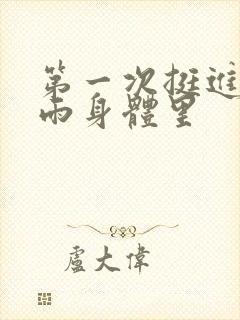 第一次挺進
雨身體里
盧大偉